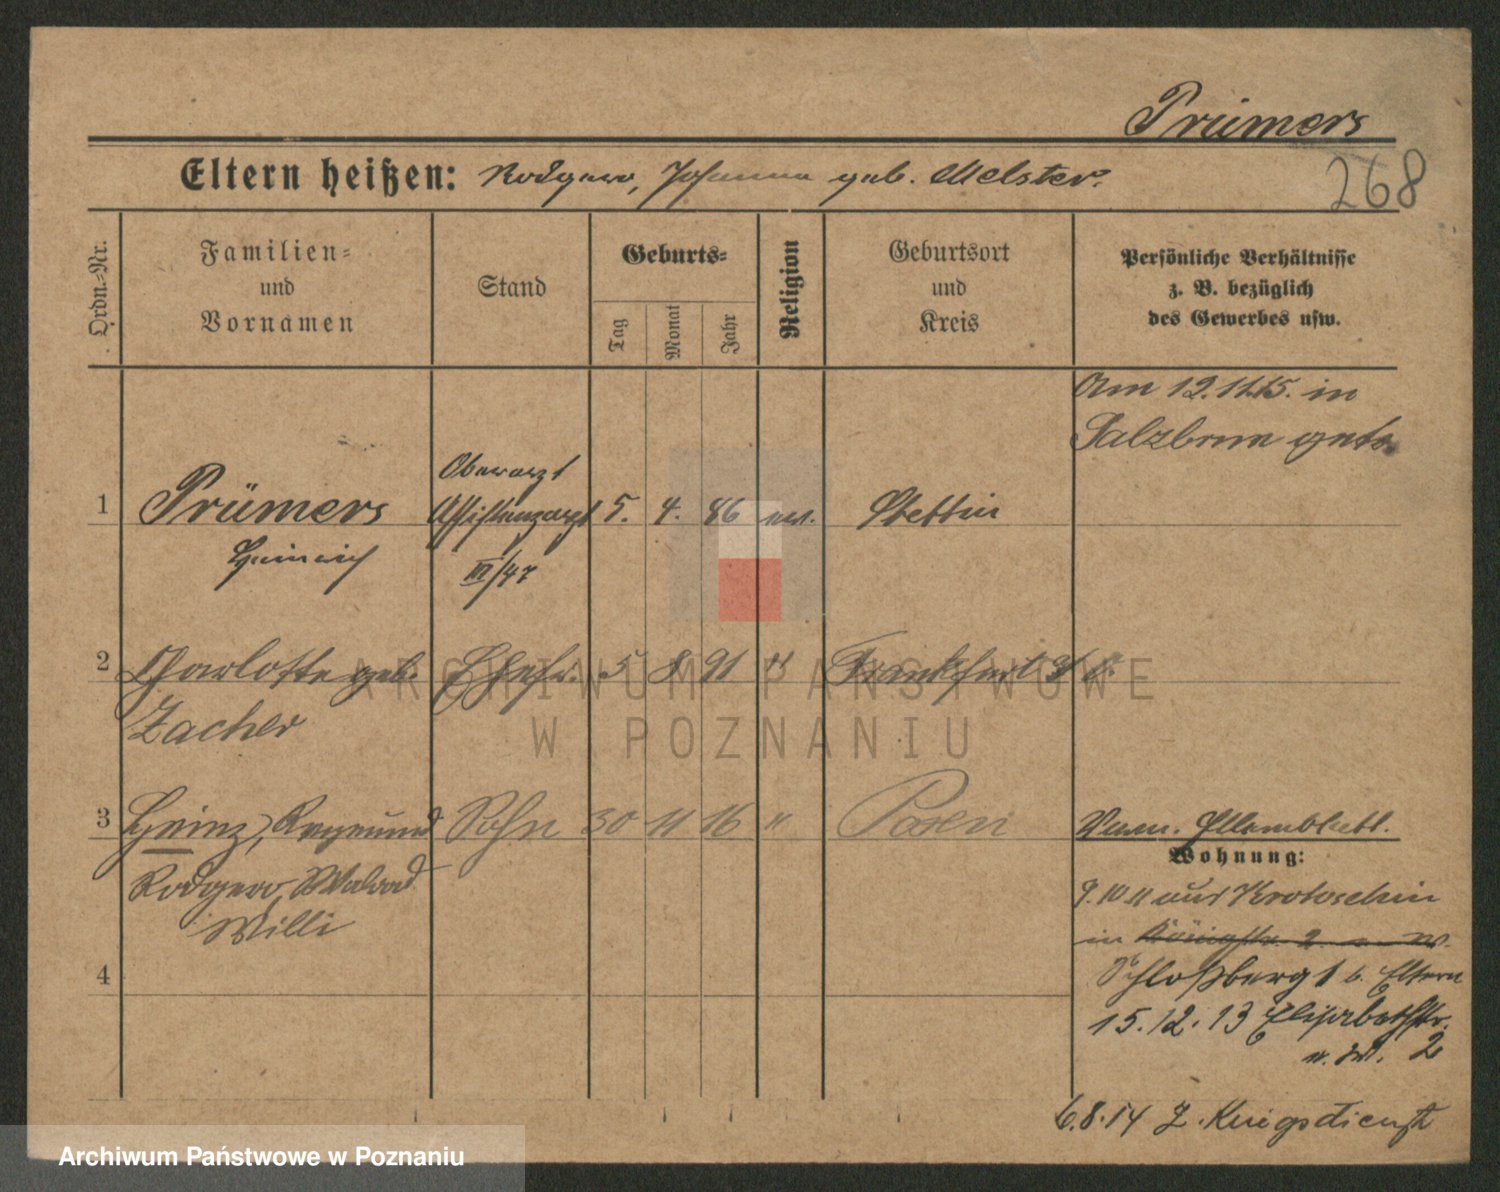 Prümers
268
Eltern heißen: Rodgero, Johanna geb. Melster.
Ordn.-Nr.
Familien-
und
Vornamen
Stand
Geburts-
Tag
Monat
Jahr
Religion
Geburtsort
und
Kreis
Persönliche Verhältnisse
z. B. bezüglich
des Gewerbes usw.
Am 12.11.15. in
Salzbrunn getr.
1 Prümers Oberarzt Assistenzarzt 5. 4. 86 ev. Stettin
Heinrich III/47
2 Charlotte geb. Ehefr. 5 8 91 " Frankfurt
Zacher
3 Heinz, Sohn 30 11 16 " Posen
Rodgero,
Willi
4
Wohnung:
9.10.11 aus Krotoschin
in Königstr. 2
Schloßberg 1 b. Eltern
15.12.13 Elisabethstr.
2
6.8.14 z. Kriegsdienst
ARCHIWUM PAŃSTWOWE
W POZNANIU
Archiwum Państwowe w Poznaniu